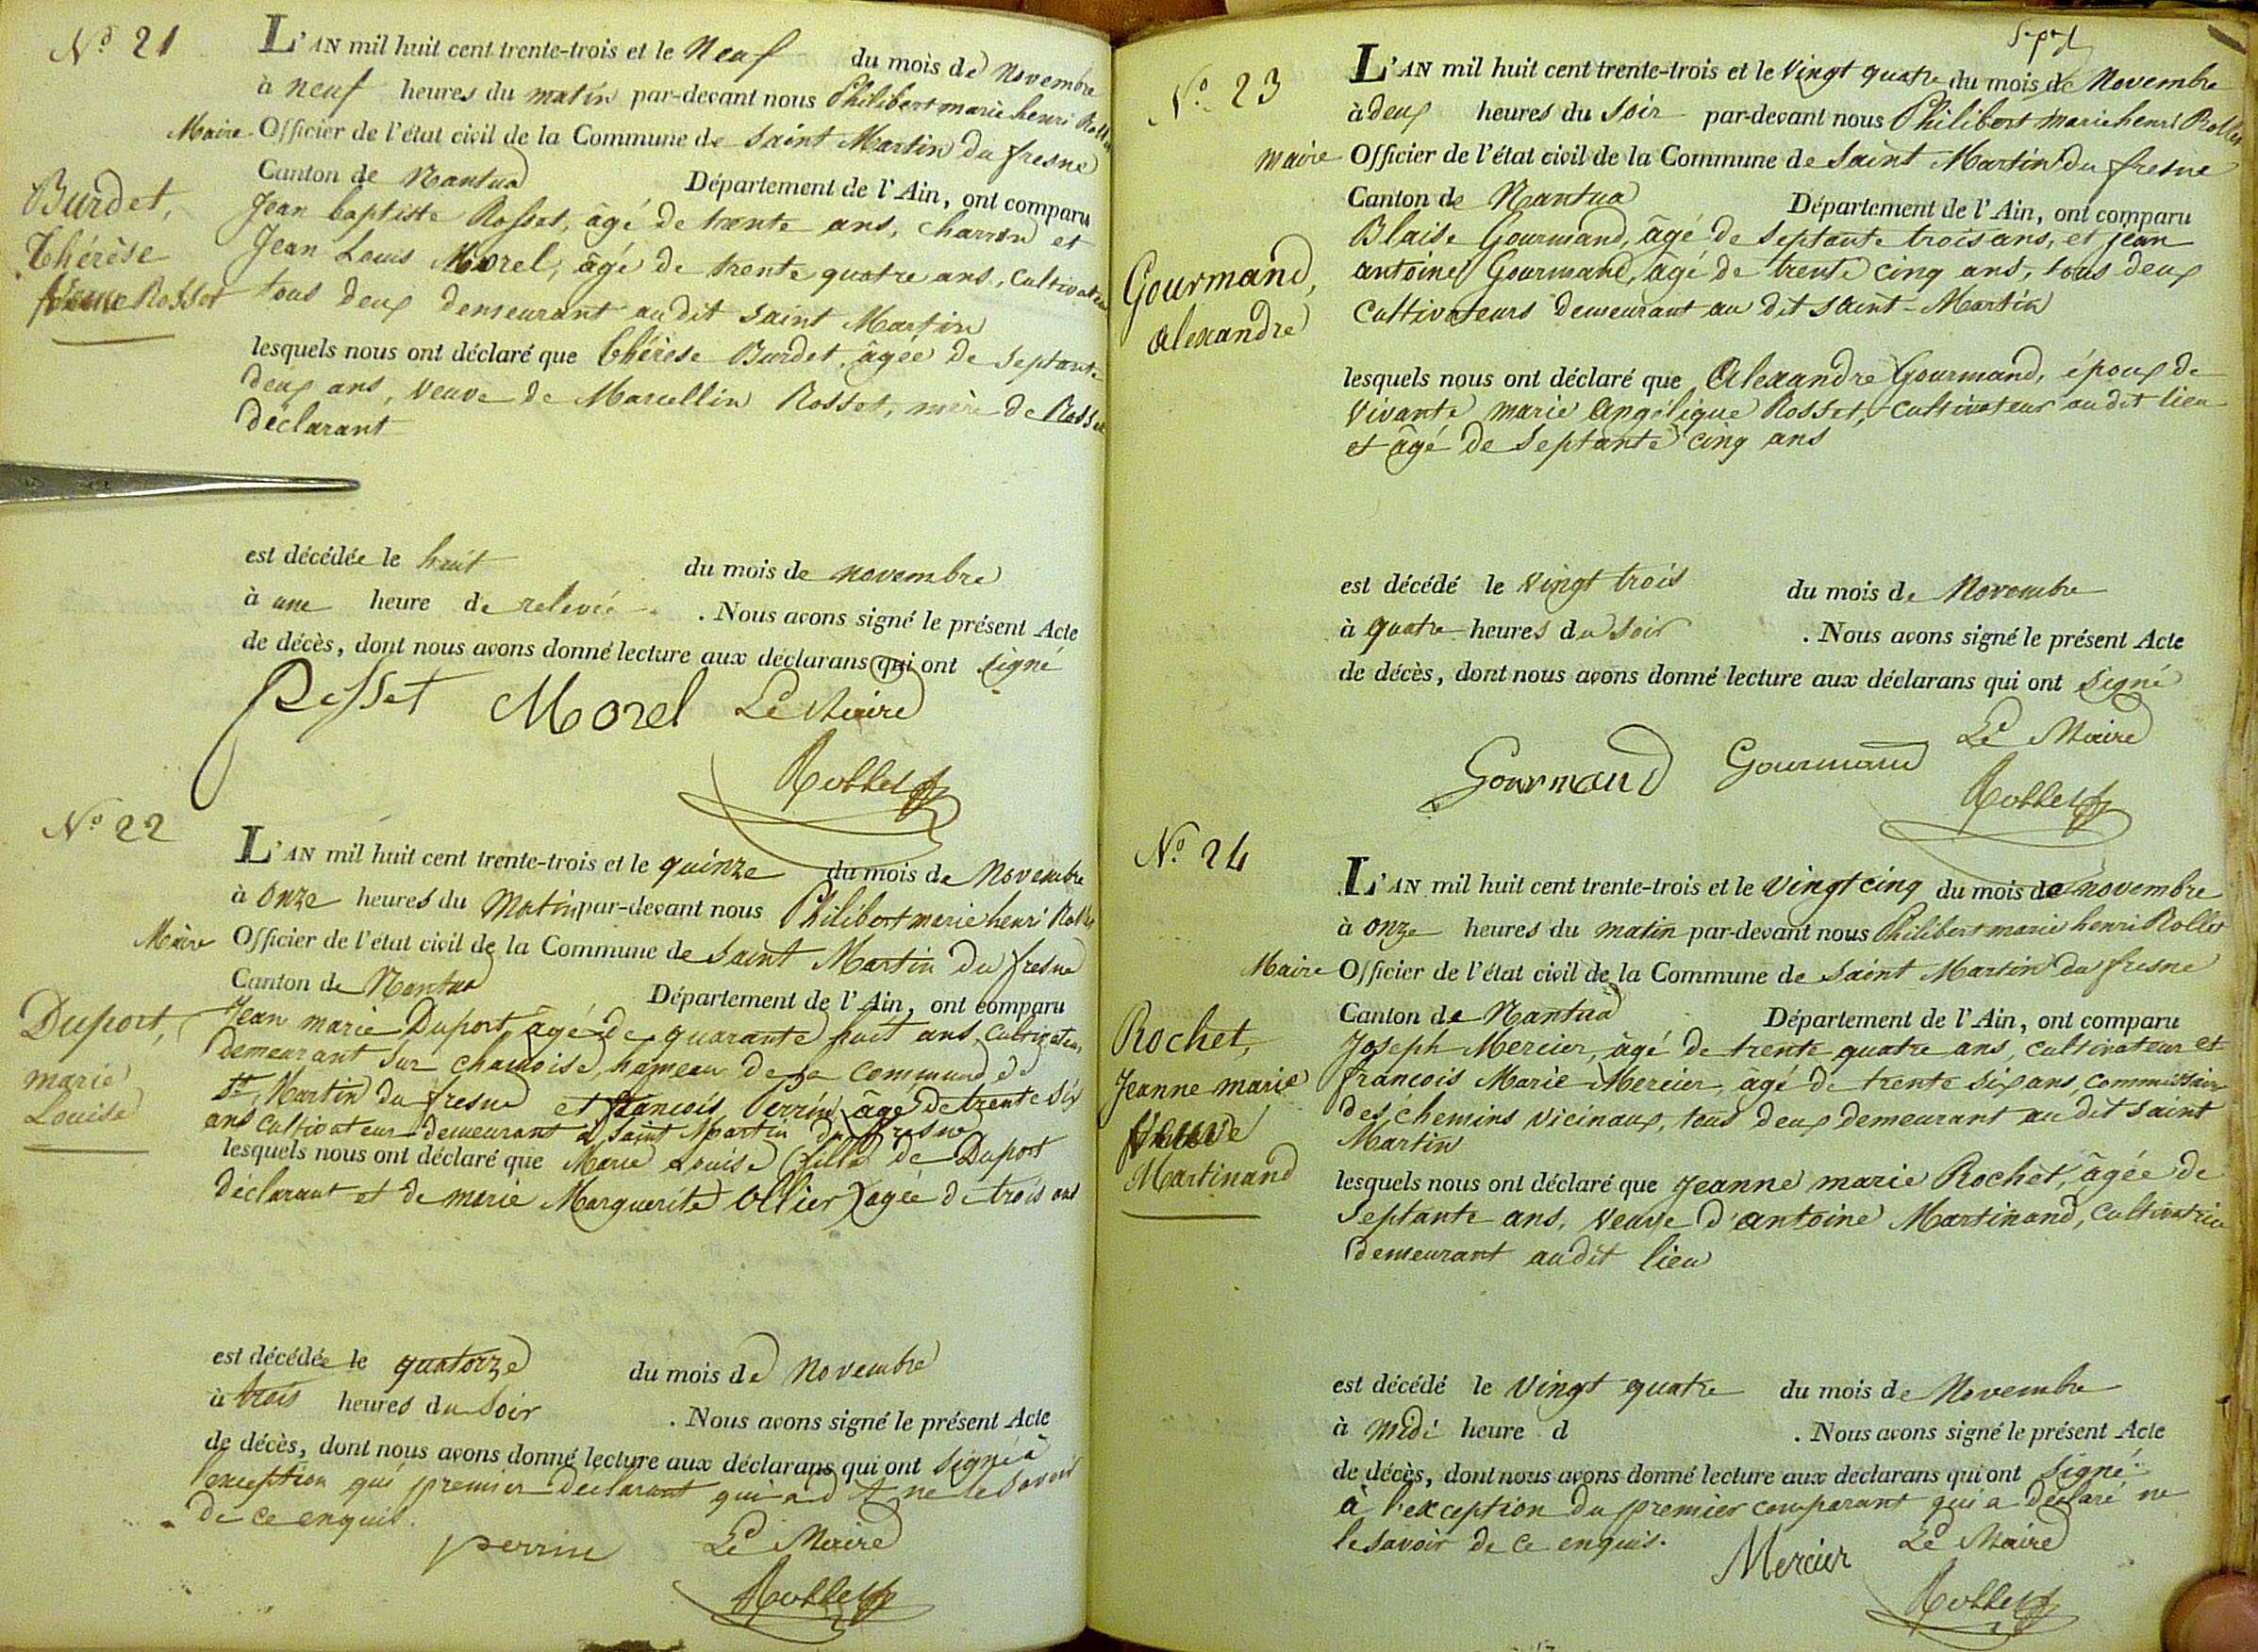 N.º 21
L'AN mil huit cent trente-trois et le Neuf du mois de Novembre
à neuf heures du matin par-devant nous Philibert marie henri Rollet
Maire Officier de l'état civil de la Commune de Saint Martin du fresne
Canton de Nantua Département de l'Ain, ont comparu
Burdet,
Thérèse
Rosset
Jean baptiste Rosset, âgé de trente ans, charron et
Jean Louis Morel, âgé de trente quatre ans, Cultivateur
tous deux demeurant audit Saint Martin
lesquels nous ont déclaré que Thérèse Burdet, âgée de Septante
deux ans, Veuve de Marcellin Rosset, mère de Rosset
déclarant
est décédée le huit du mois de novembre
à une heure de relevée . Nous avons signé le présent Acte
de décès, dont nous avons donné lecture aux déclarans qui ont signé
Rosset Morel Le Maire
Rollet
N.º 22
L'AN mil huit cent trente-trois et le quinze du mois de Novembre
à onze heures du Matin par-devant nous Philibert marie henri Rollet
Maire Officier de l'état civil de la Commune de Saint Martin du fresne
Canton de Nantua Département de l'Ain, ont comparu
Duport,
marie
Louise
Jean marie Duport, âgé de quarante huit ans, Cultivateur
demeurant sur chamoise, hameau de la Commune de
St. Martin du fresne et francois Perrin âgé de trente six
ans cultivateur demeurant à Saint Martin du fresne
lesquels nous ont déclaré que Marie Louise (fille de Duport
déclarant et de marie Marguerite Ollier) agée de trois ans
est décédée le quatorze du mois de Novembre
à trois heures du Soir . Nous avons signé le présent Acte
de décès, dont nous avons donné lecture aux déclarans qui ont signé à
l'exception que premier déclarant qui a dit ne le savoir
de ce enquis.
perrin Le Maire
Rollet
Sept
N.º 23
L'AN mil huit cent trente-trois et le Vingt quatre du mois de Novembre
à deux heures du Soir par-devant nous Philibert marie henri Rollet
maire Officier de l'état civil de la Commune de Saint Martin du fresne
Canton de Nantua Département de l'Ain, ont comparu
Gourmand,
Alexandre
Blaise Gourmand, âgé de Septante trois ans, et jean
antoine Gourmand, âgé de trente cinq ans, tous deux
Cultivateurs demeurant au dit Saint-Martin
lesquels nous ont déclaré que Alexandre Gourmand, époux de
Vivante marie Angélique Rosset, Cultivateur audit lieu
et âgé de Septante cinq ans
est décédé le Vingt trois du mois de Novembre
à quatre heures du Soir . Nous avons signé le présent Acte
de décès, dont nous avons donné lecture aux déclarans qui ont signé
Le Maire
Gourmand Gourmand
Rollet
N.º 24
L'AN mil huit cent trente-trois et le Vingt cinq du mois de novembre
à onze heures du matin par-devant nous Philibert marie henri Rollet
Maire Officier de l'état civil de la Commune de Saint Martin du fresne
Canton de Nantua Département de l'Ain, ont comparu
Rochet,
Jeanne marie
Veuve
Martinand
Joseph Mercier, âgé de trente quatre ans, cultivateur et
francois Marie Mercier, âgé de trente six ans, commissaire
des chemins vicinaux, tous deux demeurant au dit Saint
Martin
lesquels nous ont déclaré que Jeanne marie Rochet, âgée de
Septante ans, Veuve d'antoine Martinand, Cultivatrice
demeurant audit lieu
est décédé le Vingt quatre du mois de Novembre
à midi heure d . Nous avons signé le présent Acte
de décès, dont nous avons donné lecture aux déclarans qui ont signé
à l'exception du premier comparant qui a déclaré ne
le savoir de ce enquis.
Mercier Le Maire
Rollet